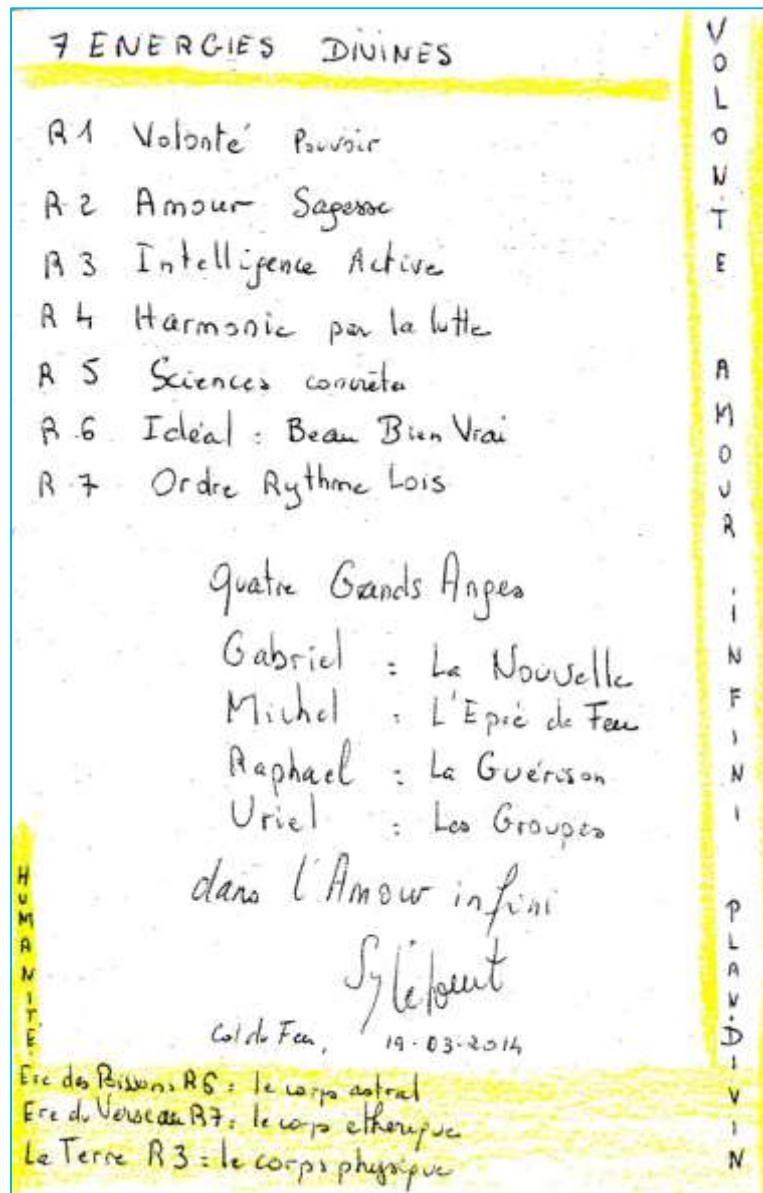 7 ENERGIES DIVINES
R1 Volonté Pouvoir
R2 Amour Sagesse
R3 Intelligence Active
R4 Harmonie par la lutte
R5 Sciences concrètes
R6 Idéal : Beau Bien Vrai
R7 Ordre Rythme Lois
Quatre Grands Anges
Gabriel : La Nouvelle
Michel : L'Epée de Feu
Raphael : La Guérison
Uriel : Les Groupes
dans l'Amour infini
19-03-2014
Ere des Poissons R6 : le corps astral
Ere du Verseau R7 : le corps etherique
La Terre R3 : le corps physique
HUMANITE
VOLONTE AMOUR INFINI PLAN DIVIN